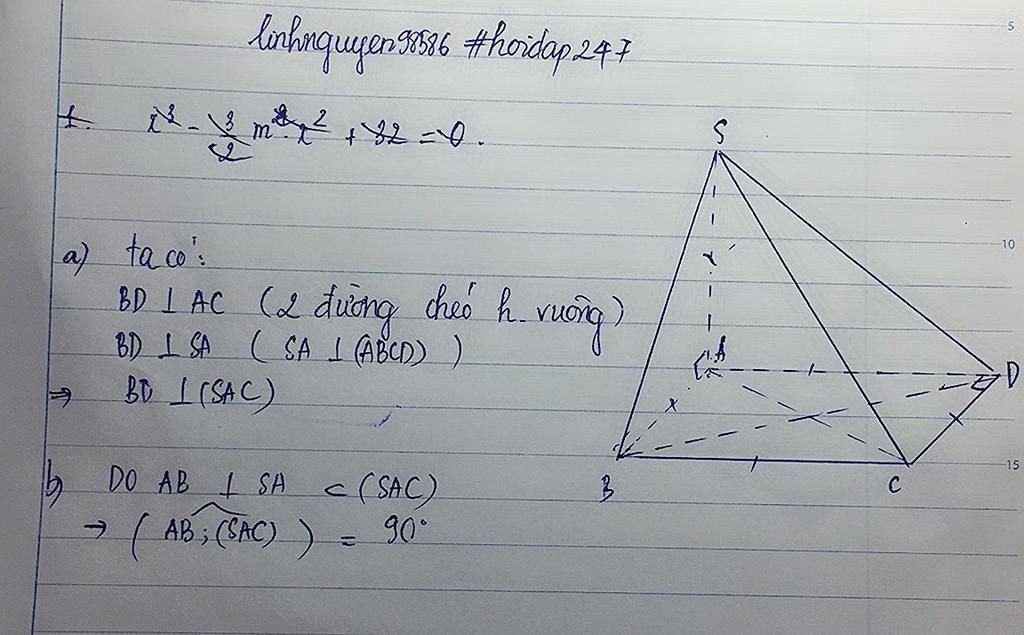 linhnguyen98586 #hoidap247
1. x³ - 3/2 m x² + 32 = 0.
a) ta có:
BD ⊥ AC (2 đường chéo h. vuông)
BD ⊥ SA ( SA ⊥ (ABCD) )
⇒ BD ⊥ (SAC)
b) DO AB ⊥ SA ⊂ (SAC)
→ (AB; (SAC)) = 90°
S
A
D
B
C
x
5
10
15